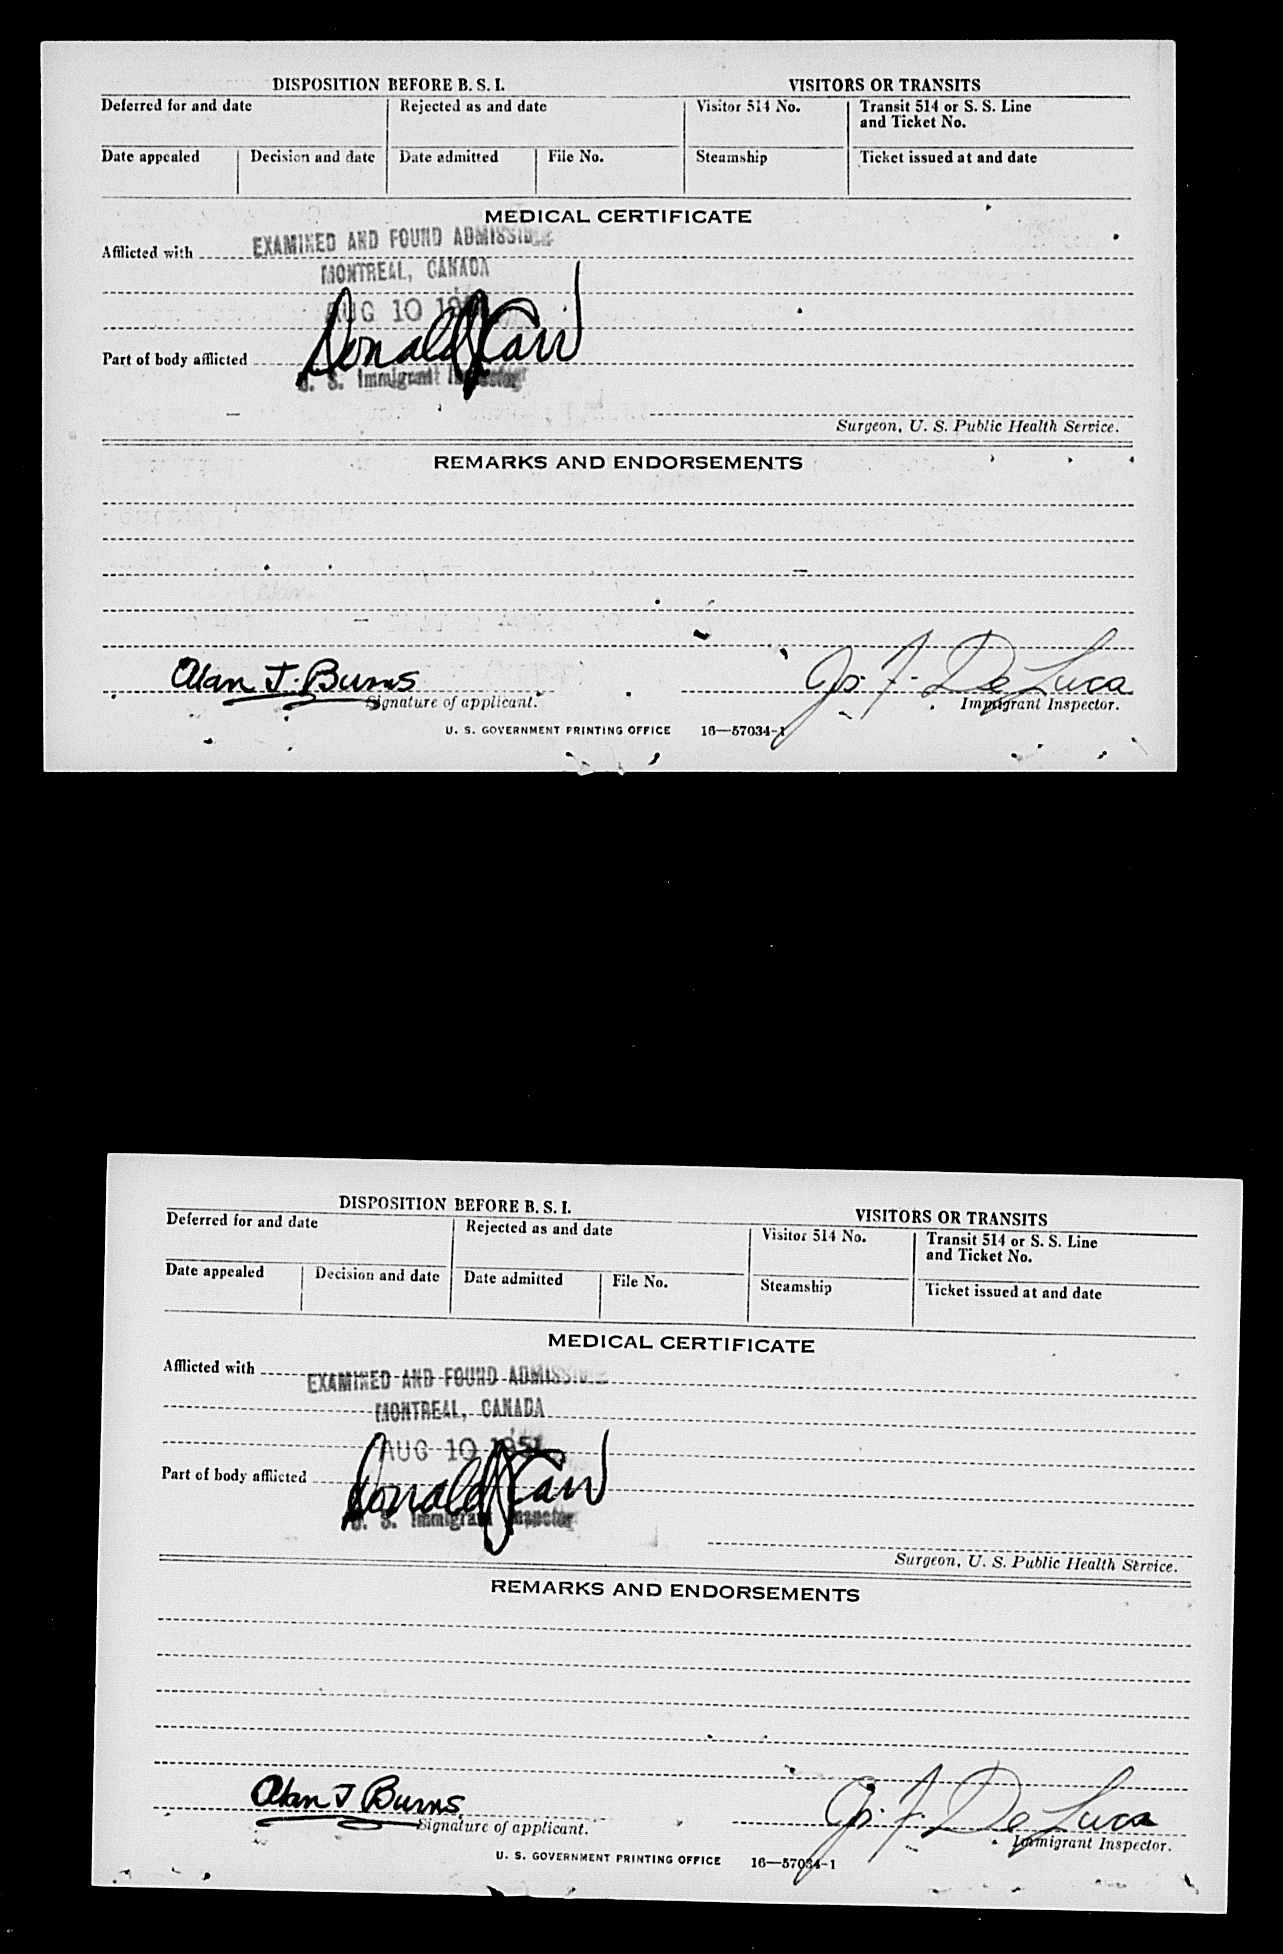 DISPOSITION BEFORE B. S. I.
VISITORS OR TRANSITS
Deferred for and date
Rejected as and date
Visitor 514 No.
Transit 514 or S. S. Line
and Ticket No.
Date appealed
Decision and date
Date admitted
File No.
Steamship
Ticket issued at and date
MEDICAL CERTIFICATE
Afflicted with
EXAMINED AND FOUND ADMISSIBLE
MONTREAL, CANADA
AUG 10
Donald J Carr
Part of body afflicted
U. S. Immigrant Inspector
Surgeon, U. S. Public Health Service.
REMARKS AND ENDORSEMENTS
Alan J. Burns
Jos. F. De Luca
Signature of applicant.
Immigrant Inspector.
U. S. GOVERNMENT PRINTING OFFICE 16—57034-1
DISPOSITION BEFORE B. S. I.
VISITORS OR TRANSITS
Deferred for and date
Rejected as and date
Visitor 514 No.
Transit 514 or S. S. Line
and Ticket No.
Date appealed
Decision and date
Date admitted
File No.
Steamship
Ticket issued at and date
MEDICAL CERTIFICATE
Afflicted with
EXAMINED AND FOUND ADMISSIBLE
MONTREAL, CANADA
AUG 10 1951
Donald J Carr
Part of body afflicted
U. S. Immigrant Inspector
Surgeon, U. S. Public Health Service.
REMARKS AND ENDORSEMENTS
Alan J Burns
Jos. F. De Luca
Signature of applicant.
Immigrant Inspector.
U. S. GOVERNMENT PRINTING OFFICE 16—57034-1